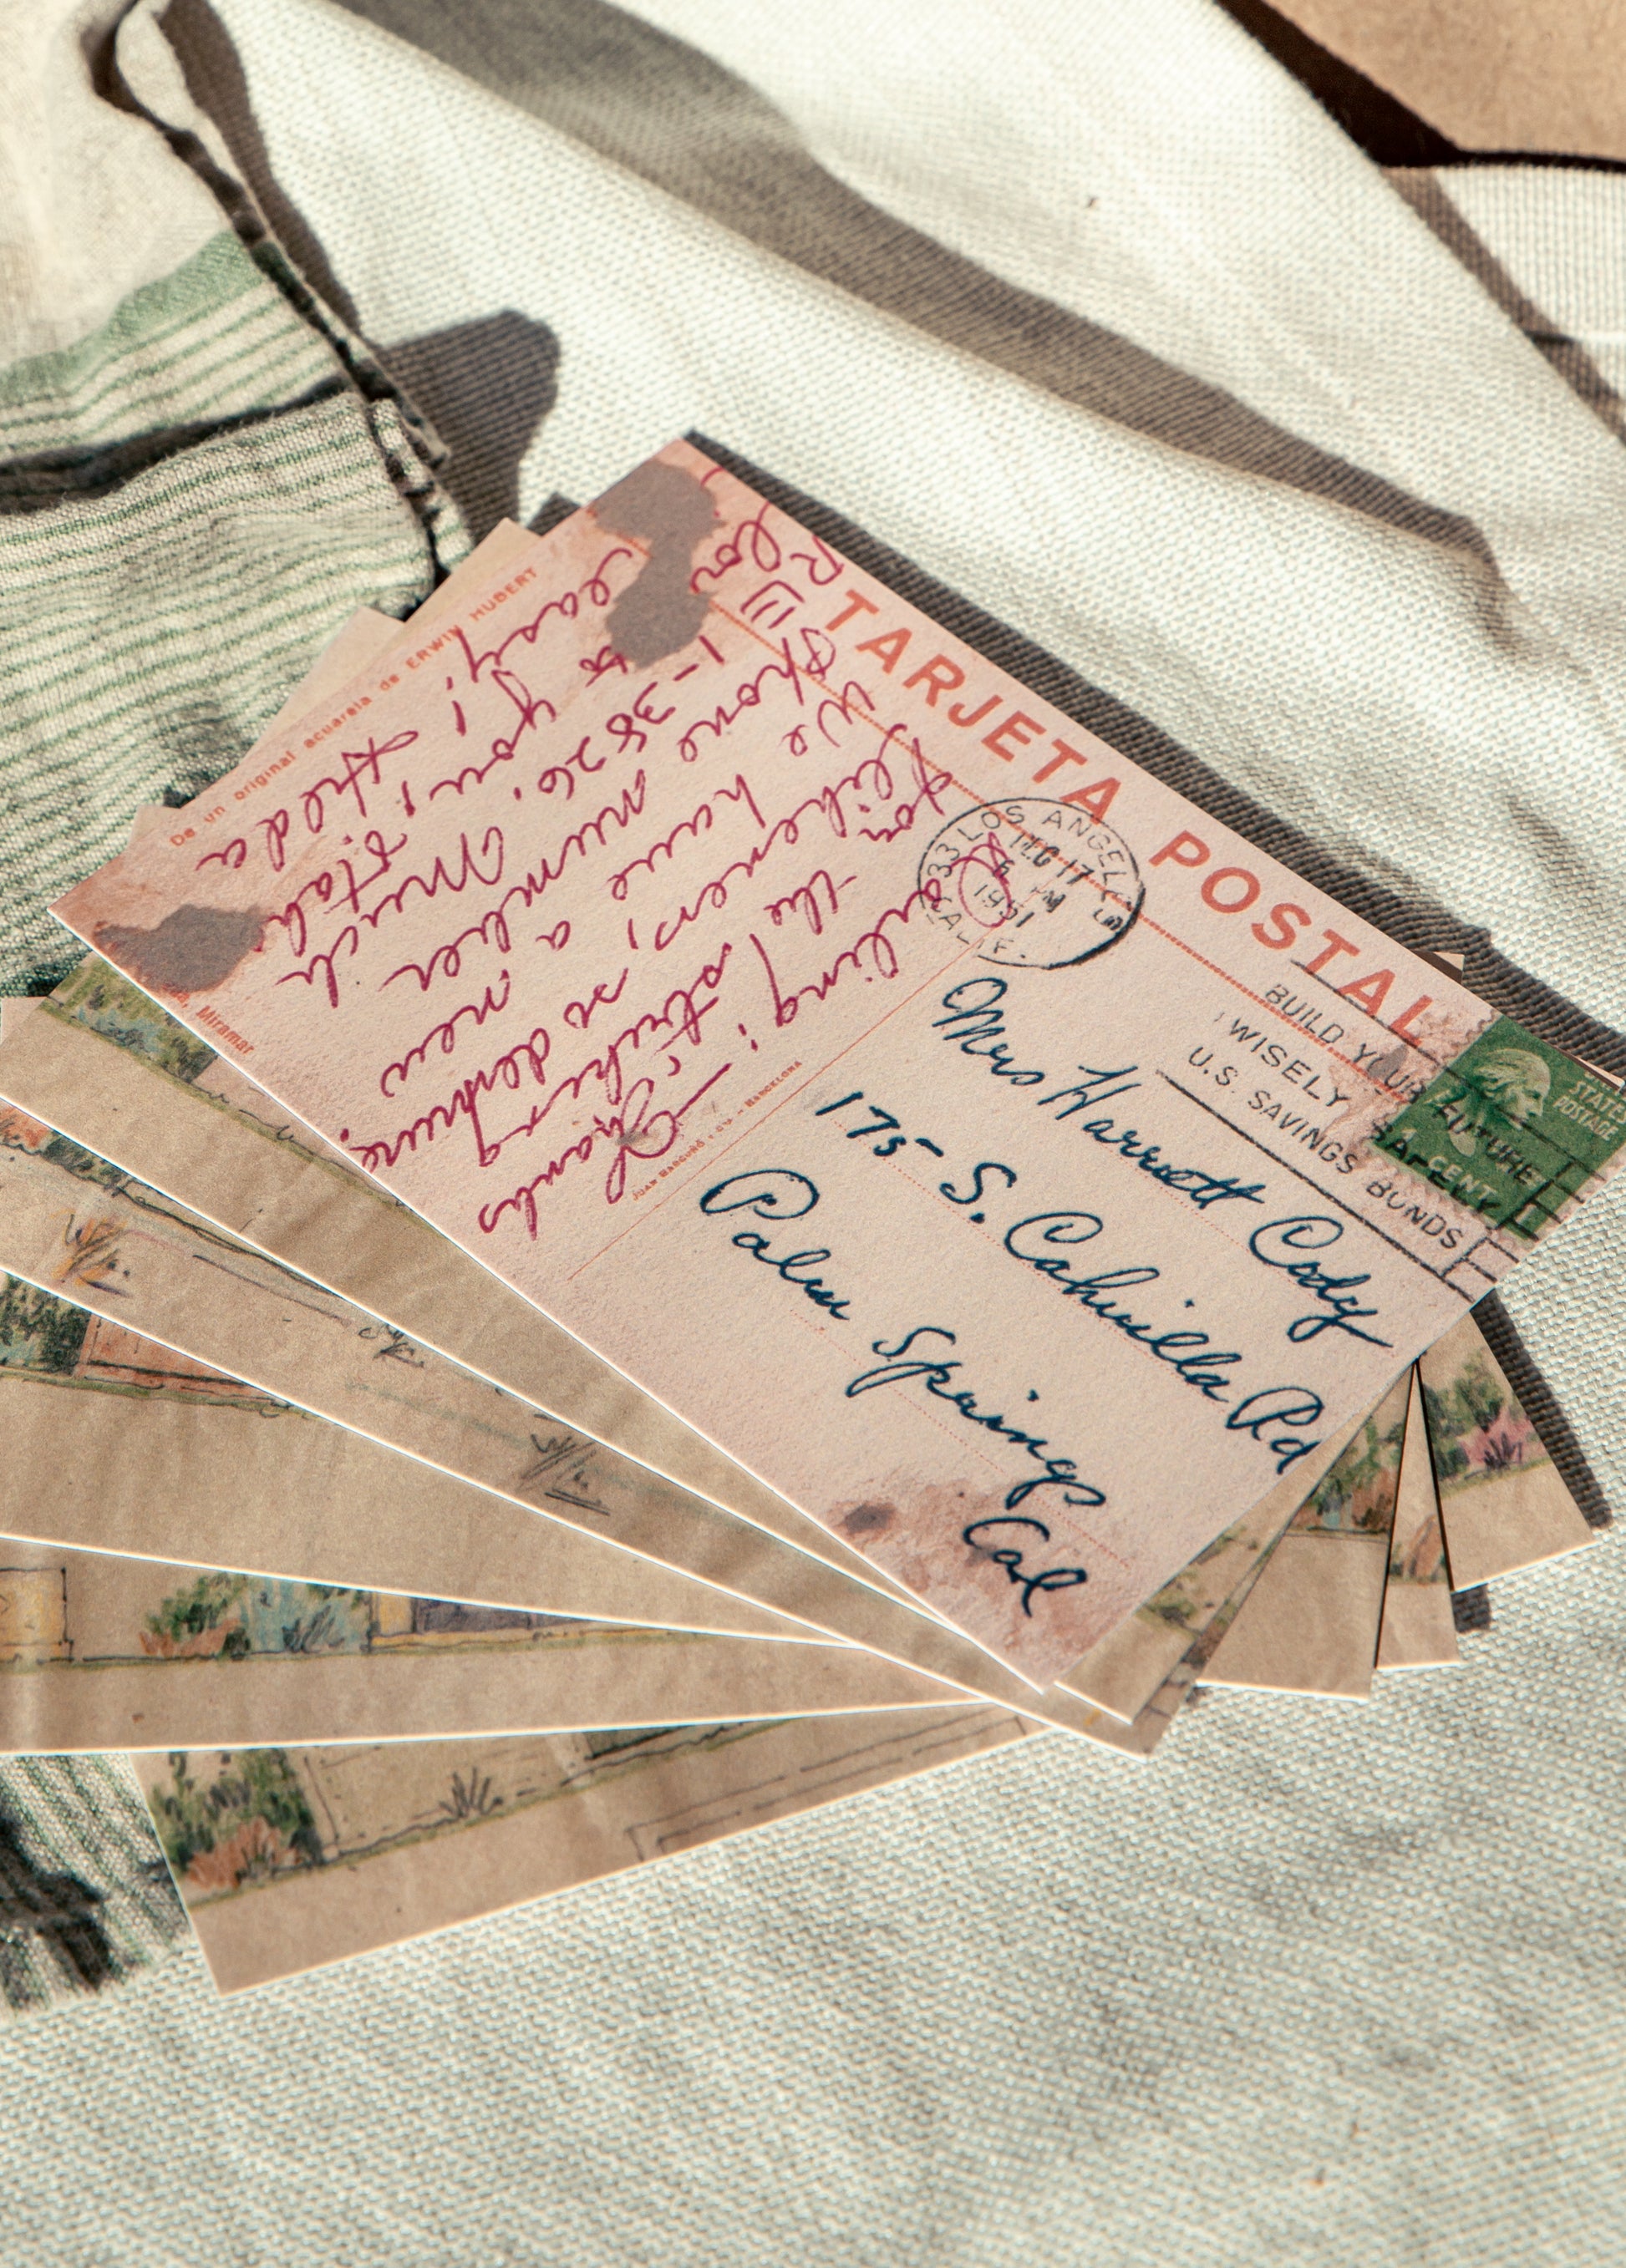 TARJETA POSTAL
LOS ANGELES
33
DEC 17
PM
1951
CALIF.
BUILD YOUR FUTURE
WISELY SAFELY
U.S. SAVINGS BONDS
STATE
POSTAGE
1 CENT
Mrs Harriett Cody
175 S. Cahuilla Rd
Palm Springs
Cal
Darling: - Thanks
for the striking
likeness, so
We have a new
Phone number
1-3826. Much
to you,
De un original acuarela de ERWIN HUBERT
Miramar
BARCELONA